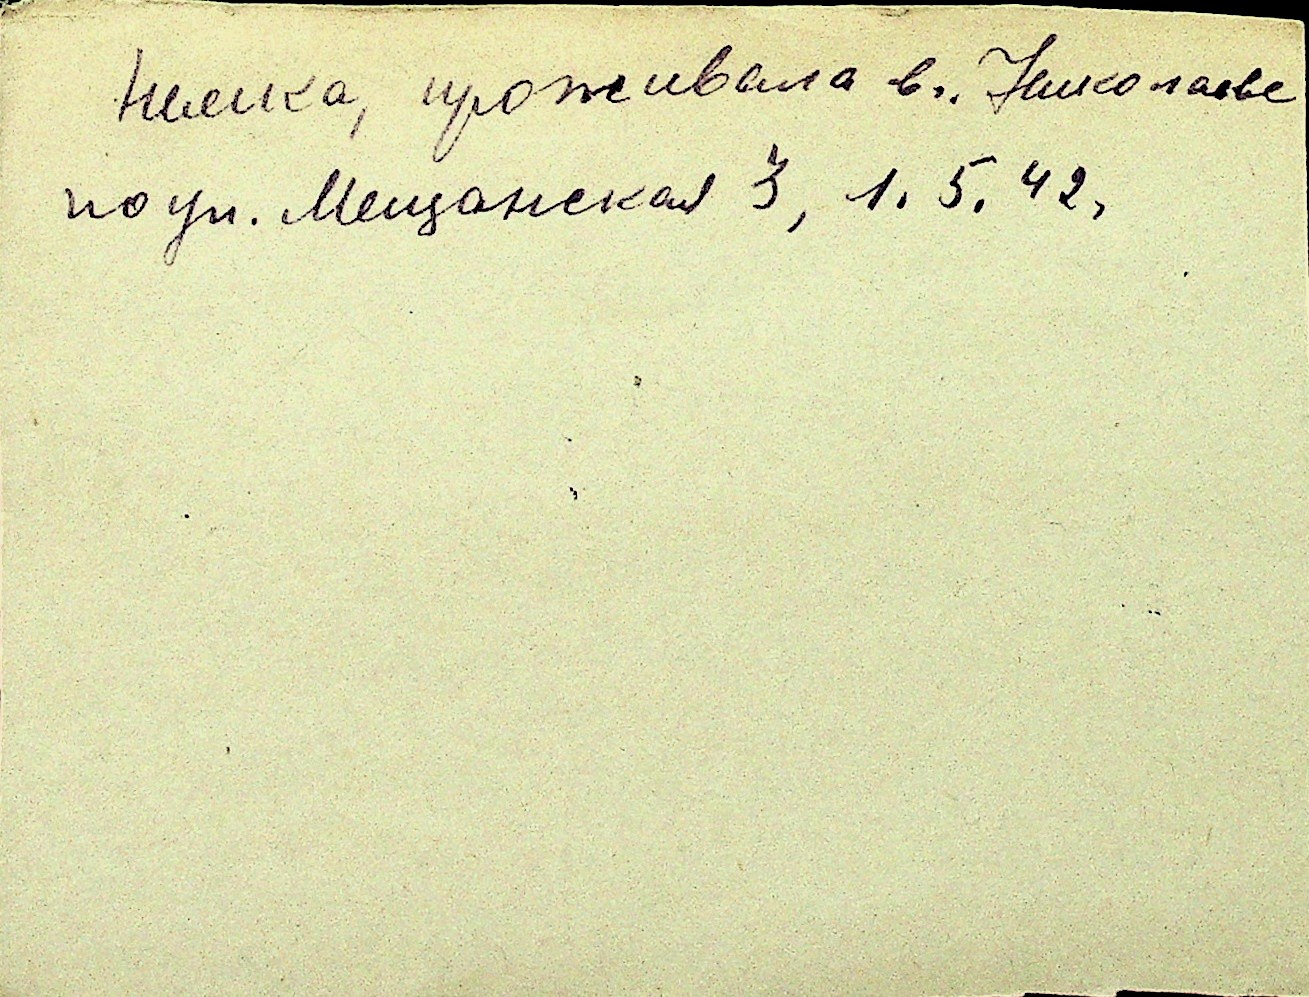 Немка, проживала в г. Николаеве
по ул. Мещанская 3, 1.5.42,